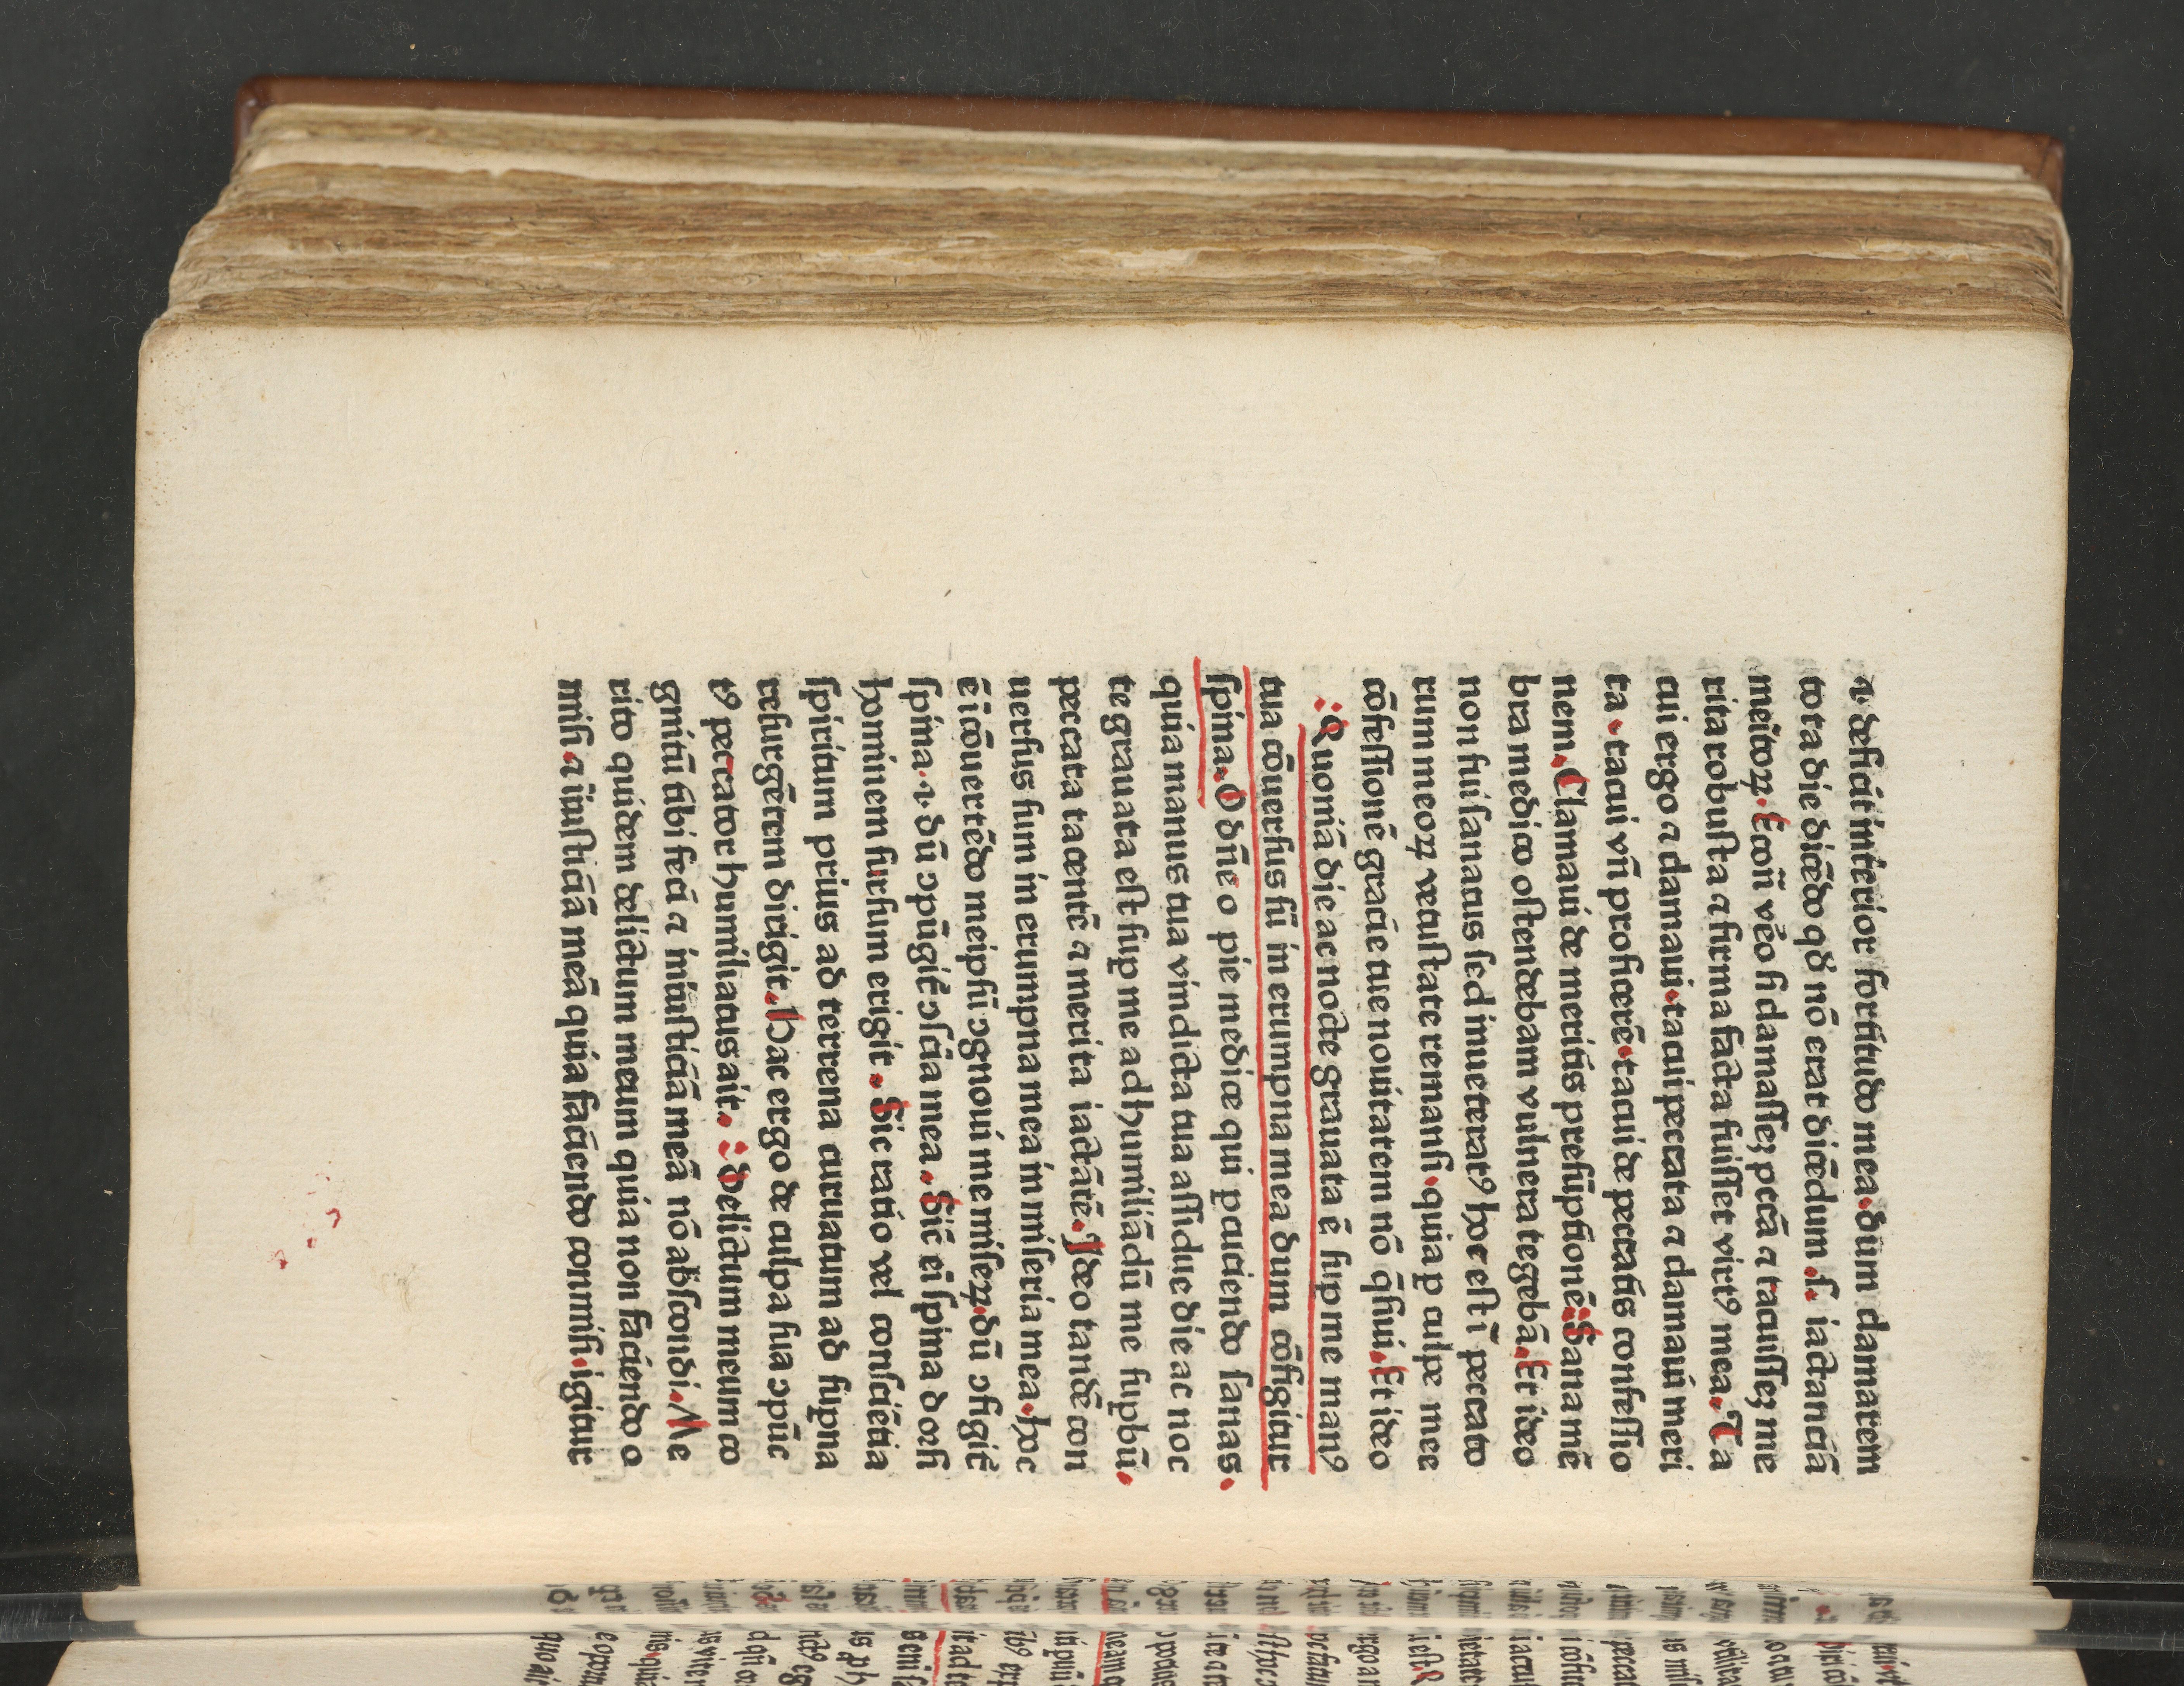 .i. deficit interior fortitudo mea. dum clamarem
tota die dicēdo qd' nō erat dicēdum .s. iactanciā
meritoꝝ. Econ̄ vēo si clamasseꝫ pctā ⁊ tacuisseꝫ me
rita robusta ⁊ firma facta fuisset virtꝰ mea. Ta
cui ergo ⁊ clamaui. tacui peccata ⁊ clamaui meri
ta. tacui vn̄ proficerē. tacui de peccatis confessio
nem. Clamaui de meritis presūptionē. Sana mē
bra medico ostendebam vulnera tegebā. Et ideo
non sui sanatus sed inueteratꝰ hoc est ī peccato
rum meoꝝ vetustate remansi. quia ꝓ culpe mee
cōfessionē gracie tue nouitatem nō q̄siui. Et ideo
Quoniā die ac nocte grauata ē sup me manꝰ
tua cōuersus sū in erumpna mea dum cōfigitur
spina. O dn̄e o pie medice qui pcuciendo sanas.
quia manus tua vindicta tua assidue die ac noc
te grauata est sup me ad humiliādū me supbū.
peccata tacentē ⁊ merita iactātē. Ideo tandē con
uersus sum in erumpna mea in miseria mea. hoc
ē i cōuertēdo meipsū ↄgnoui me miseꝝ. dū ↄfigit᷑
spina .i. dū ↄpūgit᷑ ↄsciā mea. Sic̄ ei spina dorsi
hominem sursum erigit. Sic ratio vel consciētia
spiritum prius ad terrena curuatum ad supna
resurgētem dirigit. Hac ergo de culpa sua ↄpūc
tꝰ peccator humiliatus ait. Delictum meum co
gnitū tibi feci ⁊ iniusticiā meā nō abscondi. Me
rito quidem delictum meum quia non faciendo o
misi. ⁊ iniusticiā meā quia faciendo commisi. igitur